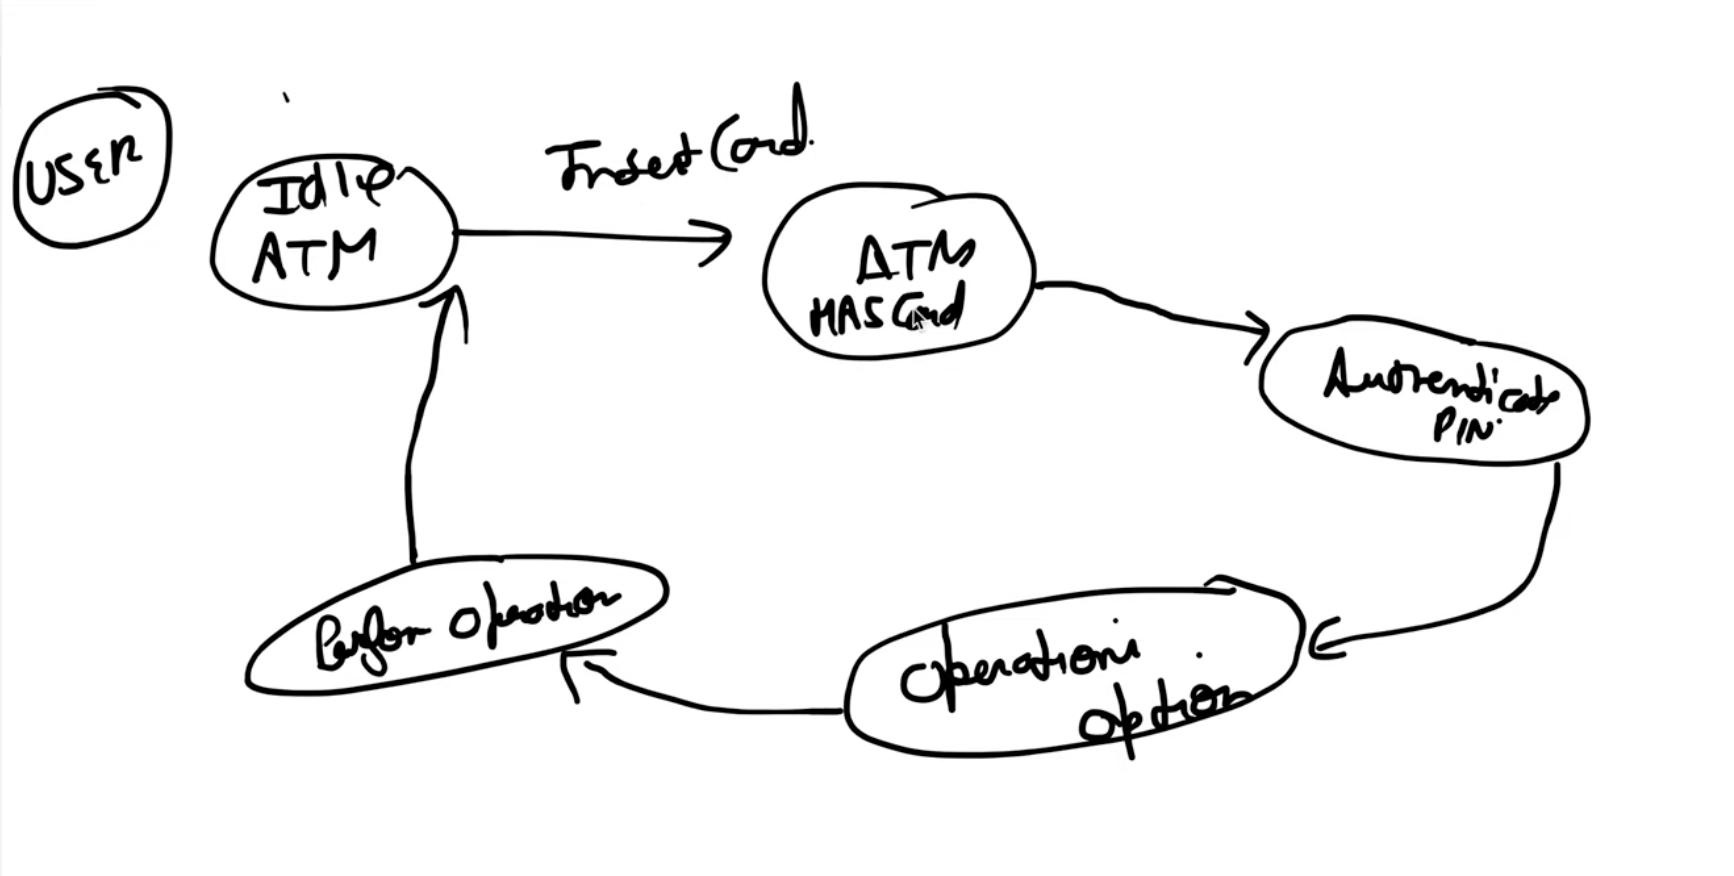 USER
Idle
ATM
Insert Card.
ATM
HAS Card
Authenticate
PIN.
Operation
option
Perfor operation